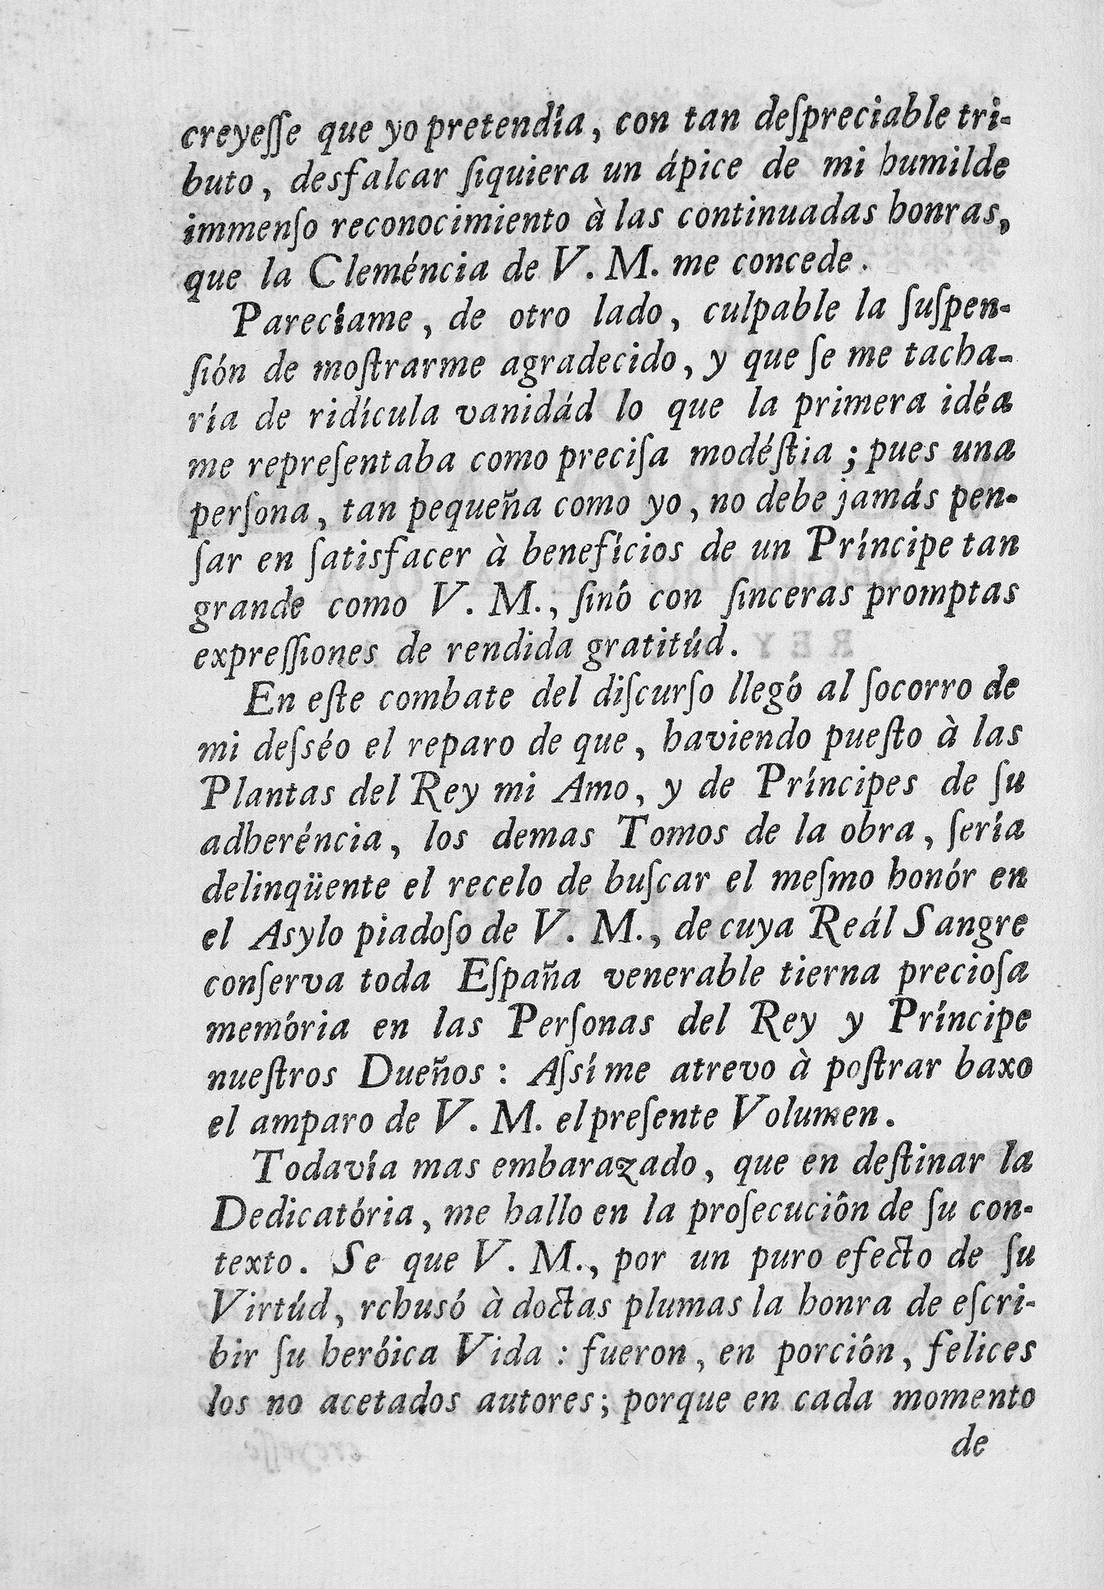 creyeſſe que yo pretendía, con tan deſpreciable tri-
buto, desfalcar ſiquiera un ápice de mi humilde
immenſo reconocimiento à las continuadas honras,
que la Cleméncia de V. M. me concede.
Parecíame, de otro lado, culpable la ſuſpen-
ſión de moſtrarme agradecido, y que ſe me tacha-
ría de ridícula vanidád lo que la primera idéa
me repreſentaba como preciſa modéſtia; pues una
perſona, tan pequeña como yo, no debe jamás pen-
ſar en ſatisfacer à benefícios de un Príncipe tan
grande como V. M., ſinó con ſinceras promptas
expreſſiones de rendida gratitúd.
En eſte combate del diſcurſo llegó al ſocorro de
mi deſséo el reparo de que, haviendo pueſto à las
Plantas del Rey mi Amo, y de Príncipes de ſu
adheréncia, los demas Tomos de la obra, ſería
delinqüente el recelo de buſcar el meſmo honór en
el Asylo piadoſo de V. M., de cuya Reál Sangre
conſerva toda Eſpaña venerable tierna precioſa
memória en las Perſonas del Rey y Príncipe
nueſtros Dueños: Aſsí me atrevo à poſtrar baxo
el amparo de V. M. el preſente Volumen.
Todavía mas embarazado, que en deſtinar la
Dedicatória, me hallo en la proſecución de ſu con-
texto. Se que V. M., por un puro efecto de ſu
Virtúd, rehusó à doctas plumas la honra de eſcri-
bir ſu heróica Vida: fueron, en porción, felices
los no acetados autores; porque en cada momento
de